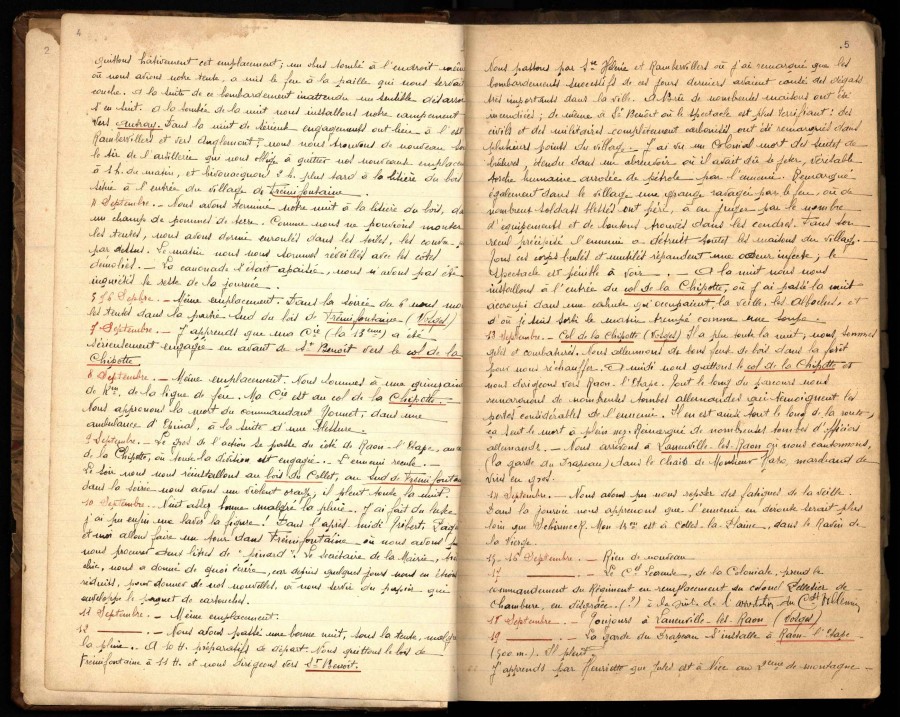 4
2
quittons hâtivement cet emplacement ; un obus tombé à l'endroit même
où nous avions notre tente, a mis le feu à la paille qui nous servait
couche. A la suite de ce bombardement inattendu un sensible désarroi
s'en suit. A la tombée de la nuit nous installons notre campement
vers Autrey. Dans la nuit de sérieux engagements ont lieu à l'est
Rambervillers et vers Anglemont ; nous nous trouvons de nouveau sous
le tir de l'artillerie qui nous oblige à quitter nos nouveaux emplace
à 1 h. du matin, et bivouaquons 2 h. plus tard à la lisière du bois
situé à l'entrée du village de Frémifontaine
4 Septembre. — Nous avons terminé notre nuit à la lisière du bois, da
un champ de pommes de terre. Comme nous ne pouvions monter
les tentes, nous avons dormi enroulés dans les toiles, les couv
par dessus. Le matin nous nous sommes réveillés avec les côtes
démolies. — La canonade s'étant apaisée, nous n'avons pas été
inquiétés le reste de la journée.
5 & 6 Septbre. — Même emplacement. Dans la soirée du 6 nous mo
les tentes dans la partie sud du bois de Frémifontaine (Vosges)
7 Septembre. — J'apprends que ma Cie (la 15ème) a été
sérieusement engagée en avant de St Benoit vers le col de la
Chipotte.
8 Septembre. — Même emplacement. Nous sommes à une quinzaine
de Km. de la ligne de feu. Ma Cie est au col de la Chipotte.
Nous apprenons la mort du commandant Jonnet, dans une
ambulance d'Epinal, à la suite d'une blessure.
9 Septembre. — Le gros de l'action se passe du côté de Raon-l'Etape, au
de la Chipotte, où toute la division est engagée. — L'ennemi recule. —
Le soir nous nous réinstallons au bois du Collet, au sud de Frémifontaine
dans la soirée nous avons un violent orage, il pleut toute la nuit.
10 Septembre. Nuit assez bonne malgré la pluie. — J'ai fait du luxe
j'ai pu enfin me laver la figure ! Dans l'après midi
et moi allons faire un tour dans Frémifontaine où nous avons pu
nous procurer deux litres de "pinard". Le secrétaire de la Mairie, bra
chic, nous a donné de quoi écrire, car depuis quelques jours nous en étions
réduits, pour donner de nos nouvelles, à nous servir du papier qui
enveloppe le paquet de cartouches.
11 Septembre. — Même emplacement.
12 ——— . — Nous avons passé une bonne nuit, sous la tente, malgré
la pluie. A 10 H. préparatifs de départ. Nous quittons le bois de
Frémifontaine à 11 H. et nous dirigeons vers St Benoit.
5
Nous passons par Ste Hélène et Rambervillers où j'ai remarqué que les
bombardements successifs de ces jours derniers avaient causé des dégâts
très importants dans la ville. A Ste Hélène de nombreuses maisons ont été
incendiées ; de même à St Benoit où le spectacle est plus terrifiant : des
civils et des militaires complètement carbonisés ont été remarqués dans
plusieurs points du village. — J'ai vu un Colonial mort des suites de
brûlures, étendu dans un abreuvoir où il avait dû se jeter, véritable
torche humaine arrosée de pétrole par l'ennemi. Remarqué
également dans le village une grange ravagée par le feu, où de
nombreux soldats blessés ont péri, à en juger par le nombre
d'équipements et de boutons trouvés dans les cendres. Dans son
recul précipité l'ennemi a détruit toutes les maisons du village. —
Tous ces corps brulés et mutilés répandent une odeur infecte ; le
spectacle est pénible à voir. — A la nuit nous nous
installons à l'entrée du col de la Chipotte, où j'ai passé la nuit
accroupi dans une cahute qu'occupaient la veille, les Alboches, et
d'où je suis sorti le matin trempé comme une soupe —
13 Septembre. — Col de la Chipotte (Vosges) Il a plu toute la nuit ; nous sommes
gelés et courbaturés. Nous allumons de bons feux de bois dans la forêt
pour nous réchauffer. A midi nous quittons le col de la Chipotte et
nous dirigeons vers Raon-l'Etape. Tout le long du parcours nous
remarquons de nombreuses tombes allemandes qui témoignent les
pertes considérables de l'ennemi. Il en est ainsi tout le long de la route,
ça sent le mort à plein nez. Remarqué de nombreuses tombes d'officiers
allemands. — Nous arrivons à Laneuville-les-Raon où nous cantonnons,
(la garde du Drapeau) dans le chais de Monsieur Raso, marchand de
vins en gros.
14 Septembre. — Nous avons pu nous reposer des fatigues de la veille.
Dans la journée nous apprenons que l'ennemi en déroute serait plus
loin que Schirmeck. Mon 15è est à Celles-la-Plaine, dans le Ravin de
la Vierge.
15-16 Septembre. — Rien de nouveau
17 ——— . — Le Ct de la Coloniale, prend le
commandement du Régiment en remplacement du colonel Pelletier de
Chambure, en disgrâce. (?) à la suite de l'arrestation du Cdt
18 Septembre. — Toujours à Laneuville-les-Raon (Vosges)
19 ——— . — La garde du Drapeau s'installe à Raon-l'Etape
(500 m.). Il pleut.
J'apprends par Henriette que Jules est à Nice au 2ème de montagne —